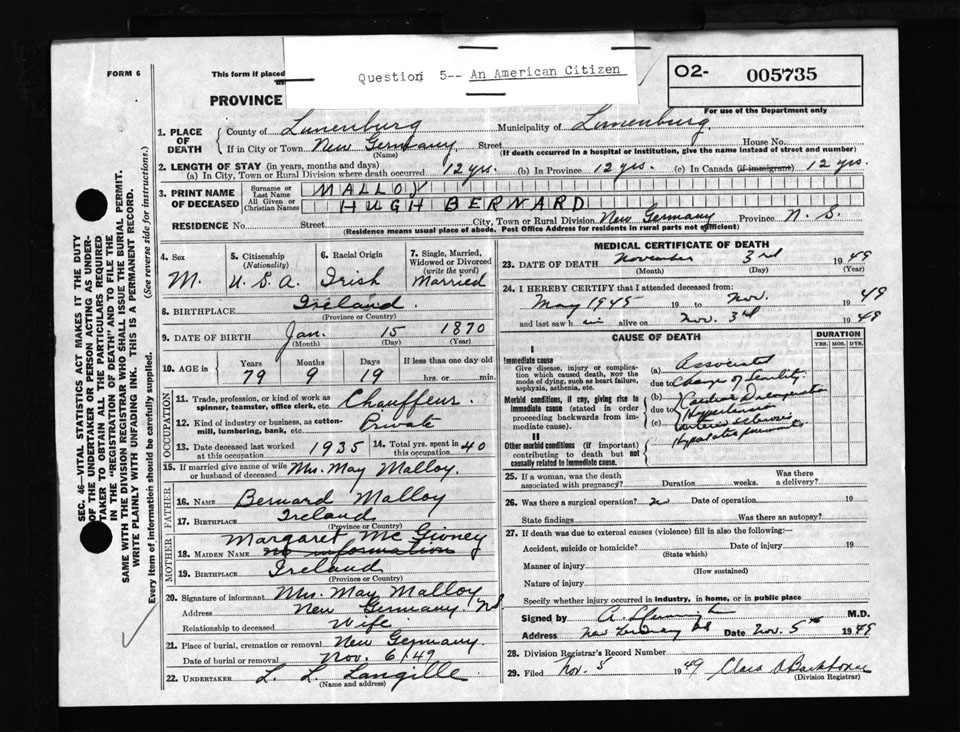 FORM 6
This form if placed
Question 5-- An American Citizen
O2- 005735
PROVINCE
For use of the Department only
1. PLACE OF DEATH
County of Lunenburg Municipality of Lunenburg
If in City or Town New Germany Street House No.
(Name) (If death occurred in a hospital or institution, give the name instead of street and number)
2. LENGTH OF STAY (in years, months and days)
(a) In City, Town or Rural Division where death occurred 12 yrs. (b) In Province 12 yrs. (c) In Canada (if immigrant) 12 yrs.
3. PRINT NAME OF DECEASED
Surname or Last Name MALLOY
All Given or Christian Names HUGH BERNARD
RESIDENCE No. Street City, Town or Rural Division New Germany Province N. S.
(Residence means usual place of abode. Post Office Address for residents in rural parts not sufficient)
4. Sex M.
5. Citizenship (Nationality) U.S.A.
6. Racial Origin Irish
7. Single, Married, Widowed or Divorced (write the word) Married
8. BIRTHPLACE Ireland.
(Province or Country)
9. DATE OF BIRTH Jan. 15 1870
(Month) (Day) (Year)
10. AGE in Years 79 Months 9 Days 19 If less than one day old hrs. or min.
OCCUPATION
11. Trade, profession, or kind of work as spinner, teamster, office clerk, etc. Chauffeur.
12. Kind of industry or business, as cotton-mill, lumbering, bank, etc. Private
13. Date deceased last worked at this occupation 1935 14. Total yrs. spent in this occupation 40
15. If married give name of wife or husband of deceased Mrs. May Malloy.
FATHER
16. NAME Bernard Malloy
17. BIRTHPLACE Ireland
(Province or Country)
MOTHER
Margaret McGivney
18. MAIDEN NAME no information
19. BIRTHPLACE Ireland
(Province or Country)
20. Signature of informant Mrs. May Malloy
Address New Germany NS
Relationship to deceased Wife
21. Place of burial, cremation or removal New Germany.
Date of burial or removal Nov. 6/49
22. UNDERTAKER L. L. Langille
(Name and address)
MEDICAL CERTIFICATE OF DEATH
23. DATE OF DEATH November 3rd 1949
(Month) (Day) (Year)
24. I HEREBY CERTIFY that I attended deceased from:
May 1945 19 to Nov. 1949
and last saw h im alive on Nov. 3rd 1949
CAUSE OF DEATH
DURATION
YRS. MOS. DYS.
I
Immediate cause
Give disease, injury or complication which caused death, NOT the mode of dying, such as heart failure, asphyxia, asthenia, etc.
(a) Associated
due to Change of Senility.
Morbid conditions, if any, giving rise to immediate cause (stated in order proceeding backwards from immediate cause).
(b) Cardiac Decompensation
due to Hypertension
(c) Arteriosclerosis
II
Other morbid conditions (if important) contributing to death but not causally related to immediate cause.
Hypostatic pneumonia
25. If a woman, was the death associated with pregnancy? Duration weeks. Was there a delivery?
26. Was there a surgical operation? no Date of operation 19
State findings Was there an autopsy?
27. If death was due to external causes (violence) fill in also the following:—
Accident, suicide or homicide? Date of injury 19
(State which)
Manner of injury
(How sustained)
Nature of injury
Specify whether injury occurred in industry, in home, or in public place
Signed by M.D.
Address New Germany NS Date Nov. 5th 1949
28. Division Registrar's Record Number
29. Filed Nov. 5 1949 Clara Barkhouse
(Division Registrar)
SEC. 46—VITAL STATISTICS ACT MAKES IT THE DUTY
OF THE UNDERTAKER OR PERSON ACTING AS UNDER-
TAKER TO OBTAIN ALL THE PARTICULARS REQUIRED
IN THE "REGISTRATION OF DEATH" AND TO FILE THE
SAME WITH THE DIVISION REGISTRAR WHO SHALL ISSUE THE BURIAL PERMIT.
WRITE PLAINLY WITH UNFADING INK. THIS IS A PERMANENT RECORD.
Every item of information should be carefully supplied. (See reverse side for instructions.)